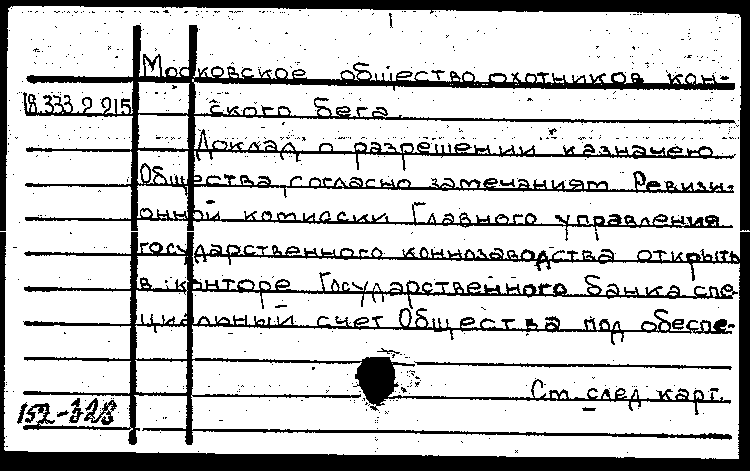 Московское общество охотников кон-
18.333.2 215 ского бега.
Доклад о разрешении казначею
Общества, согласно замечаниям Ревизи-
онной комиссии Главного управления
государственного коннозаводства открыть
в конторе Государственного банка спе-
циальный счет Общества под обеспе-
См. след карт.